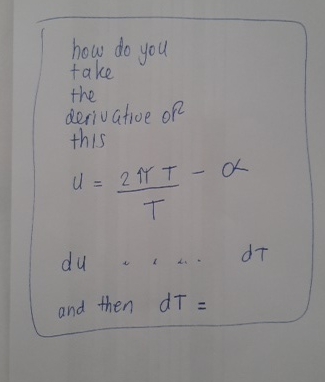 how do you
take
the
derivative of
this
u = 2πT/T - α
du .... dT
and then dT =